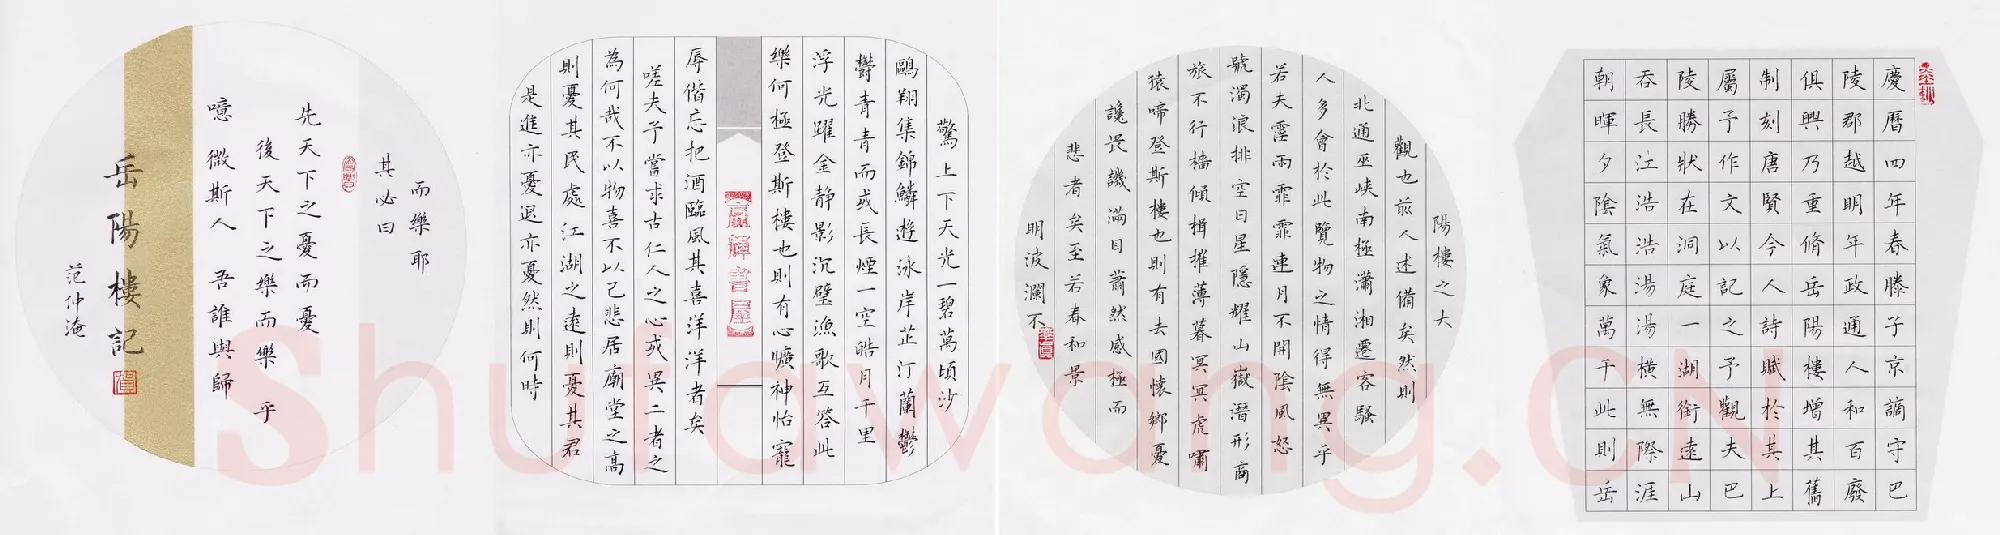 慶曆四年春滕子京謫守巴
陵郡越明年政通人和百廢
俱興乃重脩岳陽樓增其舊
制刻唐賢今人詩賦於其上
屬予作文以記之予觀夫巴
陵勝狀在洞庭一湖銜遠山
吞長江浩浩湯湯橫無際涯
朝暉夕陰氣象萬千此則岳
陽樓之大
觀也前人述備矣然則
北通巫峽南極瀟湘遷客騷
人多會於此覽物之情得無異乎
若夫霪雨霏霏連月不開陰風怒
號濁浪排空日星隱耀山嶽潛形商
旅不行檣傾楫摧薄暮冥冥虎嘯
猿啼登斯樓也則有去國懷鄉憂
讒畏譏滿目蕭然感極而
悲者矣至若春和景
明波瀾不
驚上下天光一碧萬頃沙
鷗翔集錦鱗遊泳岸芷汀蘭鬱
鬱青青而或長煙一空皓月千里
浮光躍金静影沉璧漁歌互答此
樂何極登斯樓也則有心曠神怡寵
辱偕忘把酒臨風其喜洋洋者矣
嗟夫予嘗求古仁人之心或異二者之
為何哉不以物喜不以己悲居廟堂之高
則憂其民處江湖之遠則憂其君
是進亦憂退亦憂然則何時
而樂耶
其必曰
先天下之憂而憂
後天下之樂而樂乎
噫微斯人吾誰與歸
岳陽樓記
范仲淹
Shufawang.CN